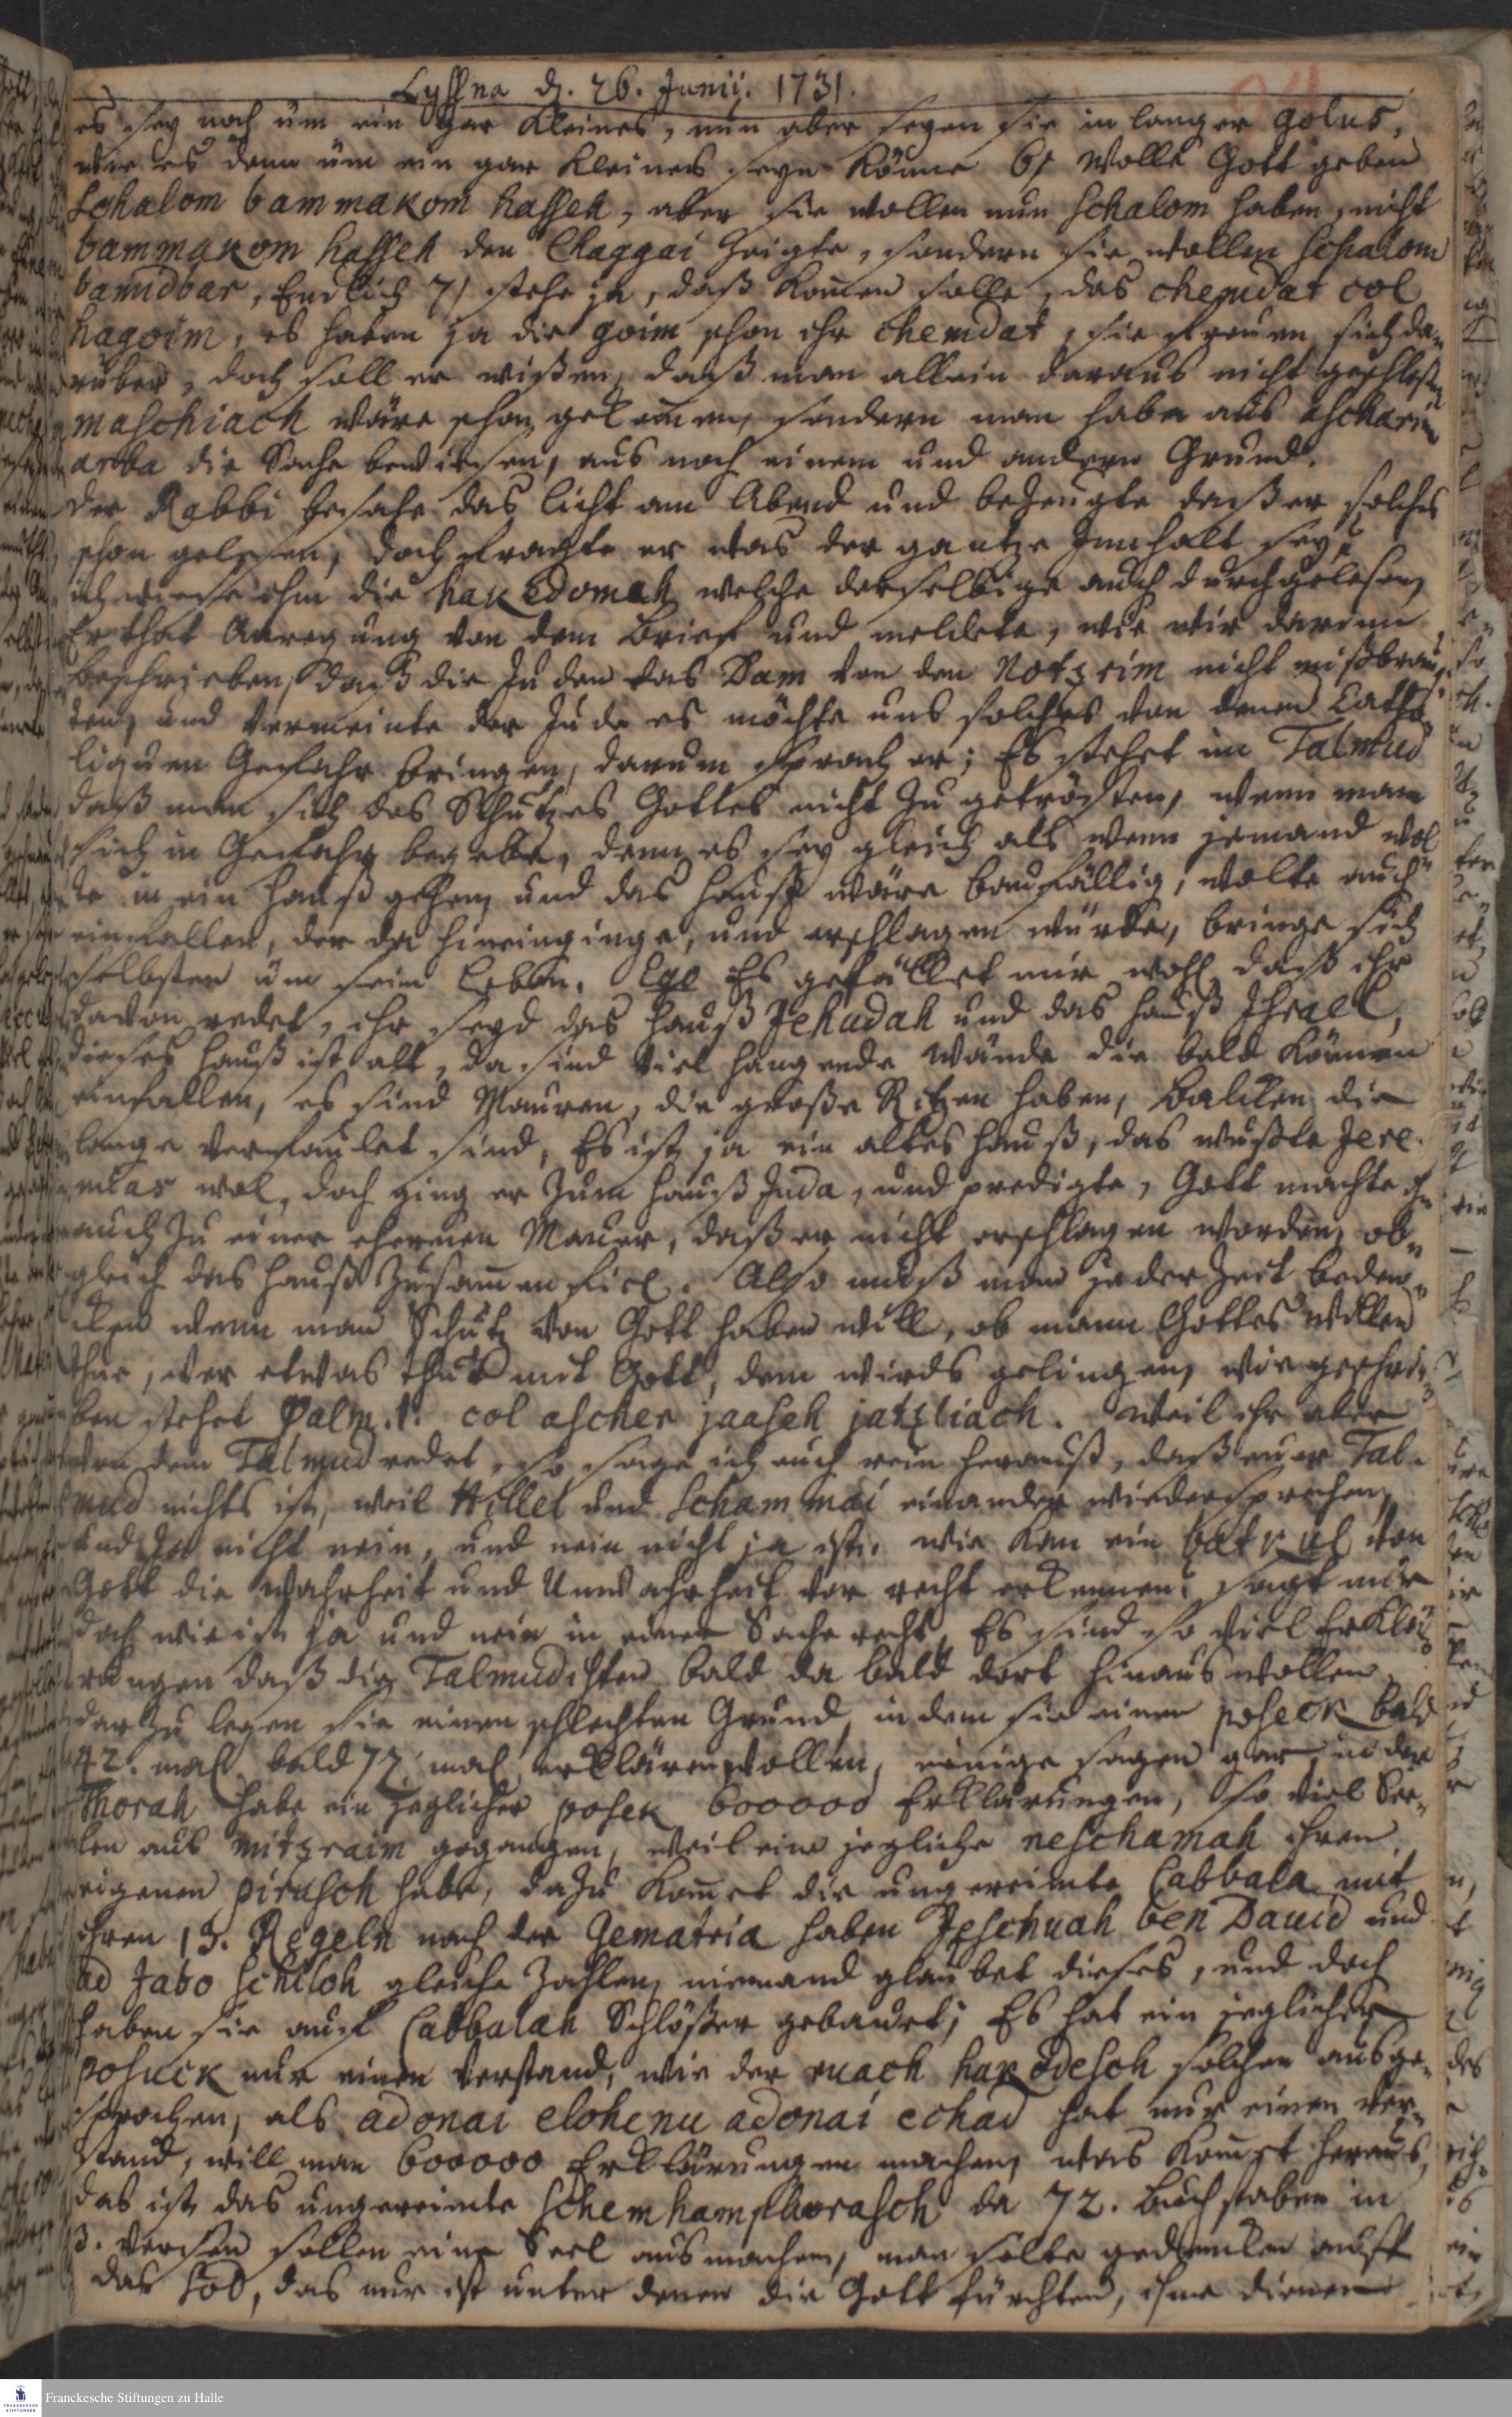 Lyssna d. 26. Junii. 1731.
es sey noch üm ein gar kleines, nun aber seyen sie in langer golus,
wie es denn üm ein gar kleines seyn könne 6) wolle Gott geben
Schalom bammakom hasseh, aber sie wollen nun schalom haben, nicht
bammakom hasseh den Chaggai zeigte, sondern sie wollen schalom
bamidbar, Endlich 7) stehe ja, daß komen solle, das chemdat col
hagoim, es haben ja die goim schon ihr chemdat, sie freuen sich da-
rüber, doch soll er wißen, daß man allein daraus nicht geschloßen
maschiach wäre schon gekomen, sondern man habe aus escharim
arba die Sache bewiesen, aus noch einem und andern Grund.
Der Rabbi besahe das licht am Abend und bezeugte daß er solches
schon gelesen, doch fragte er was der gantze Innhalt sey?
ich wiese ihm die hakedomah, welche derselbige auch durchgelesen,
Er that Anregung von dem Brief und meldete, wie wir darinn
beschrieben, daß die Juden das Dam von den Notzrim nicht mißbrauch-
ten, und vermeinte der Jude es möchte uns solches von denen Catho-
liquen Gefahr bringen, darum sprach er; Es stehet im Talmud
daß man sich des Schutzes Gottes nicht zu getrösten, wenn man
sich in Gefahr begebe, denn es sey gleich als wenn jemand wol
te in ein Hauß gehen, und das Hauß wäre baufällig, wolte auch
einfallen, der da hineinginge, und erschlagen würde, bringe sich
selbsten üm sein Leben. Ego Es gefället mir wohl daß ihr
davon redet, ihr seyd das Hauß Jehudah und das Hauß Jsrael,
dieses Hauß ist alt, da sind viel hangende Wände die bald können
einfallen, es sind Mauren, die große Ritzen haben, Balcken die
lange verfaulet sind, Es ist ja ein altes Hauß, das wußte Jere-
mias wol, doch ging er zum Hauß Juda, und predigte, Gott machte ihn
auch zu einer ehernen Mauer, daß er nicht erschlagen worden, ob-
gleich das Hauß zusamen fiel. Also muß man jeder Zeit beden-
cken wenn man Schutz von Gott haben will, ob mann Gottes Willen
thue, wer etwas thut mit Gott, dem wirds gelingen, wie geschrie-
ben stehet Psalm. 1. col ascher jaaseh jatzliach. Weil ihr aber
von dem Talmud redet, so sage ich euch rein herauß, daß euer Tal-
mud nichts ist, weil Hillel und Schammai einander wiedersprechen,
und Ja nicht nein, und nein nicht ja ist, wie kan ein batkul von
Gott die Wahrheit und Unwahrheit vor recht erkennen, sagt mir
doch wie ist ja und nein in einer Sache recht, Es sind so viel Erklä-
rungen daß die Talmudisten bald da bald dort hinaus wollen
darzu legen sie einen schlechten Grund, in dem sie einen poseck bald
42. mal, bald 72 mal erklären wollen, einige sagen gar, in der
Thorah habe ein jeglicher posek 600000 Erklärungen, so viel See-
len aus mitzraim gegangen, weil eine jegliche neschamah ihren
eigenen pirusch habe, dazu komet die ungereimte Cabbala mit
ihren 13. Regeln nach der Gematria haben Jeschuah ben David und
ad Jabo Schiloh gleiche Zahlen, niemand glaubet dieses, und doch
haben sie auf Cabbalah Schlößer gebauet; Es hat ein jeglicher
posuck nur einen Verstand, wie der ruach hakodesch solchen ausge-
sprochen, als adonai elohenu adonai echad hat nur einen Ver-
stand, will man 600000 Erklärungen machen, was komt heraus,
das ist das ungereimte Schemhamphorasch da 72. Buchstaben in
3. Versen sollen eine Seel ausmachen, man solte gedencken auff
das Sod, das nur ist unter denen die Gott fürchten, ihme dienen
Franckesche Stiftungen zu Halle